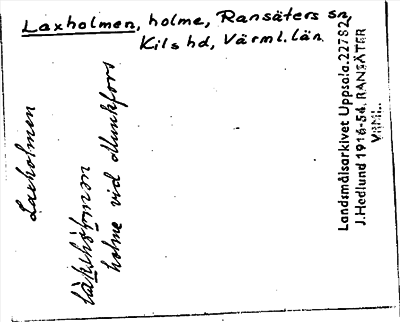 Laxholmen, holme, Ransäters sn,
Kils hd, Värml. län.
Laxholmen
holme vid Munkfors
Landsmålsarkivet Uppsala. 22782
J. Hedlund 1916-54. RANSÄTER
VÄRML.